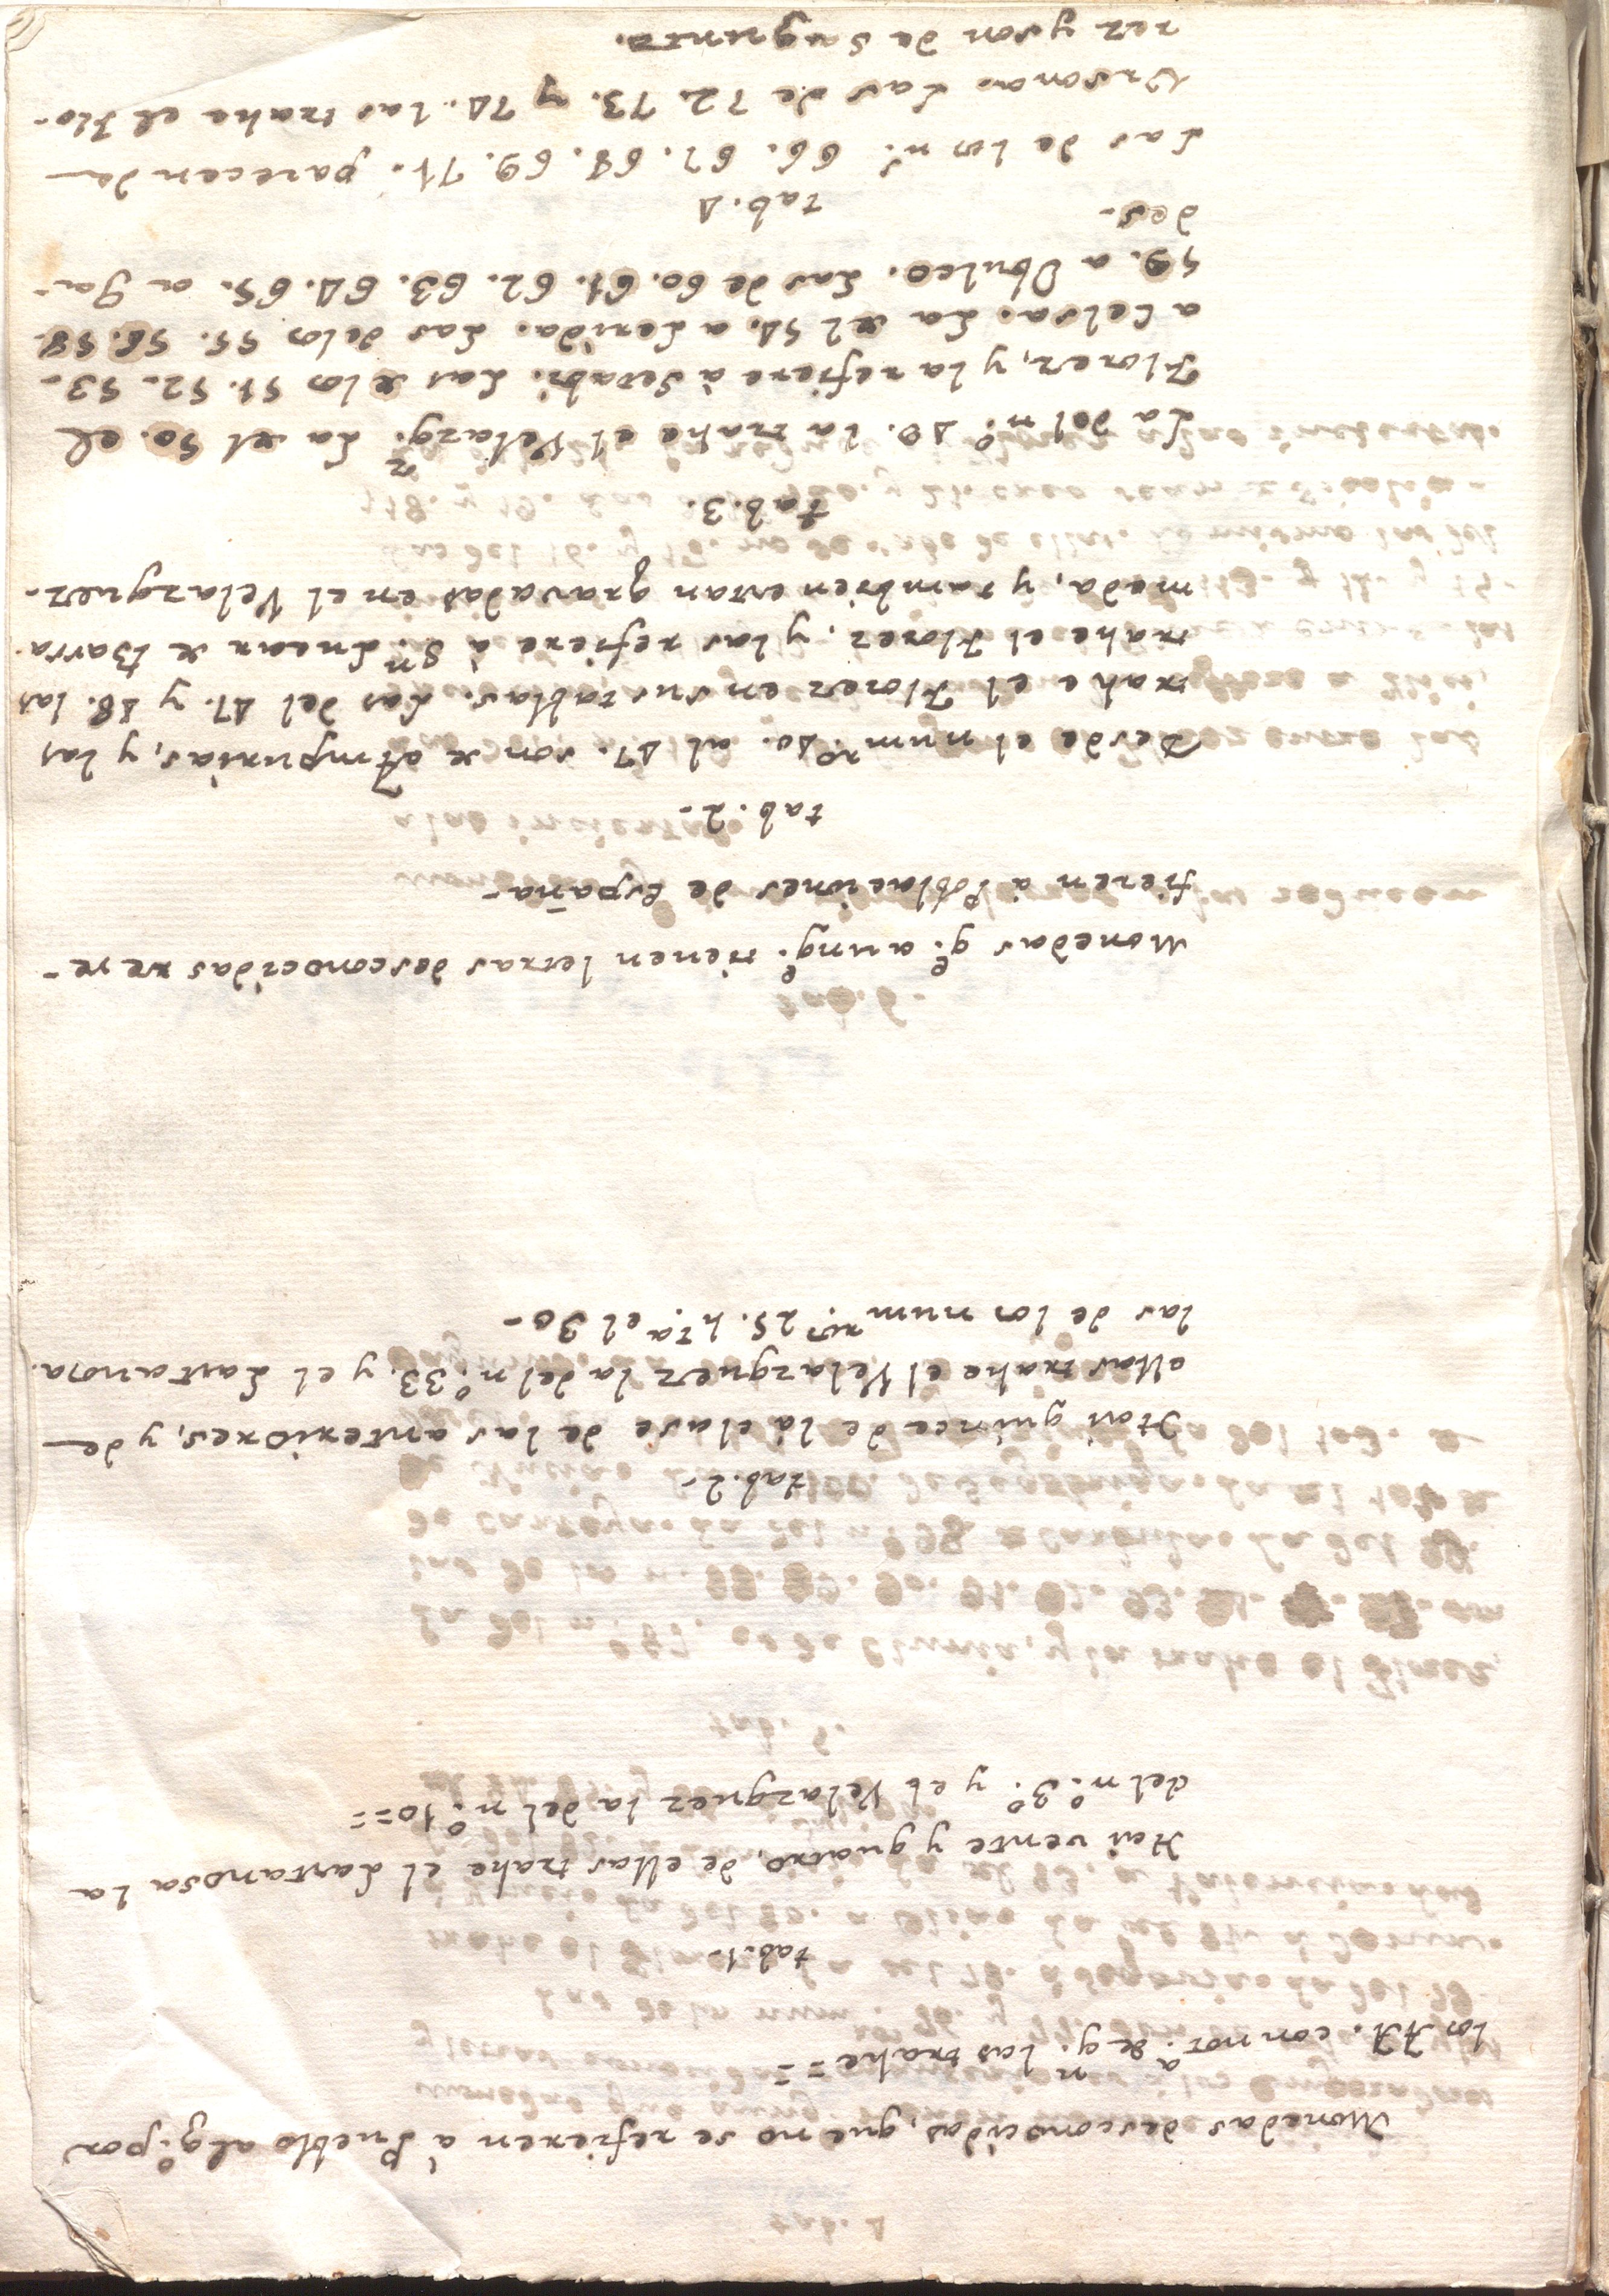 Monedas desconocidas, que no se refieren à Pueblo alg.º por
los AA. con not.ª de q.n las trahe ==
tab. 1.
Hai vente y quatro, de ellas trahe el Lastanosa la
del n.º 3º y el Velazquez la del n.º 10 ==
tab. 2-
Hai quince de la clase de las anteriores, y de
ellas trahe el Velazquez la del n.º 33, y el Lastanosa
las de los num.ros 25. h.ta el 30-
Monedas q.e aunq.e tienen letras desconocidas se re-
fieren à Poblaciones de España-
tab. 2.-
Desde el num.ro 40. al 47. son de Ampurias, y las
trahe el Florez en sus tablas. Las del 47. y 48. las
trahe el Florez, y las refiere à S.n Lucar de Barra-
meda, y tambien estan gravadas en el Velazquez.
tab. 3.
La del n.º 49. la trahe el Velazq.z La del 50. el
Florez, y la refiere à Setabi. Las de los 51. 52. 53.
a Celsa. La del 54. a Lerida. Las de los 55. 56. 58.
59. a Obulco. Las de 60. 61. 62. 63. 64. 65. a Ga-
des.-
tab. 4
Las de los n.os 66. 67. 68. 69. 71. parecen de
Ursona. Las de 72. 73. y 74. las trahe el Flo-
rez y son de Sagunto.